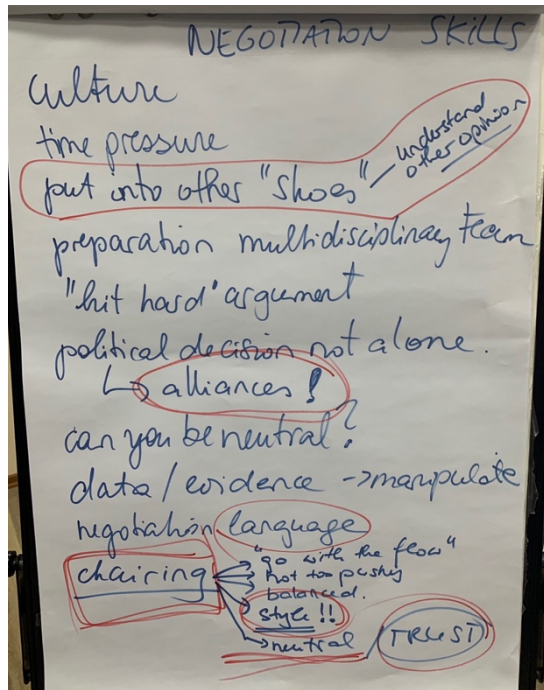 NEGOTIATION SKILLS
culture
time pressure
put into other "shoes" — understand
other opinion
preparation multidisciplinary team
"hit hard" argument
political decision not alone.
↳ alliances!
can you be neutral?
data / evidence -> manipulate
negotiation language
chairing
"go with the flow"
not too pushy
balanced.
style!!
neutral
TRUST